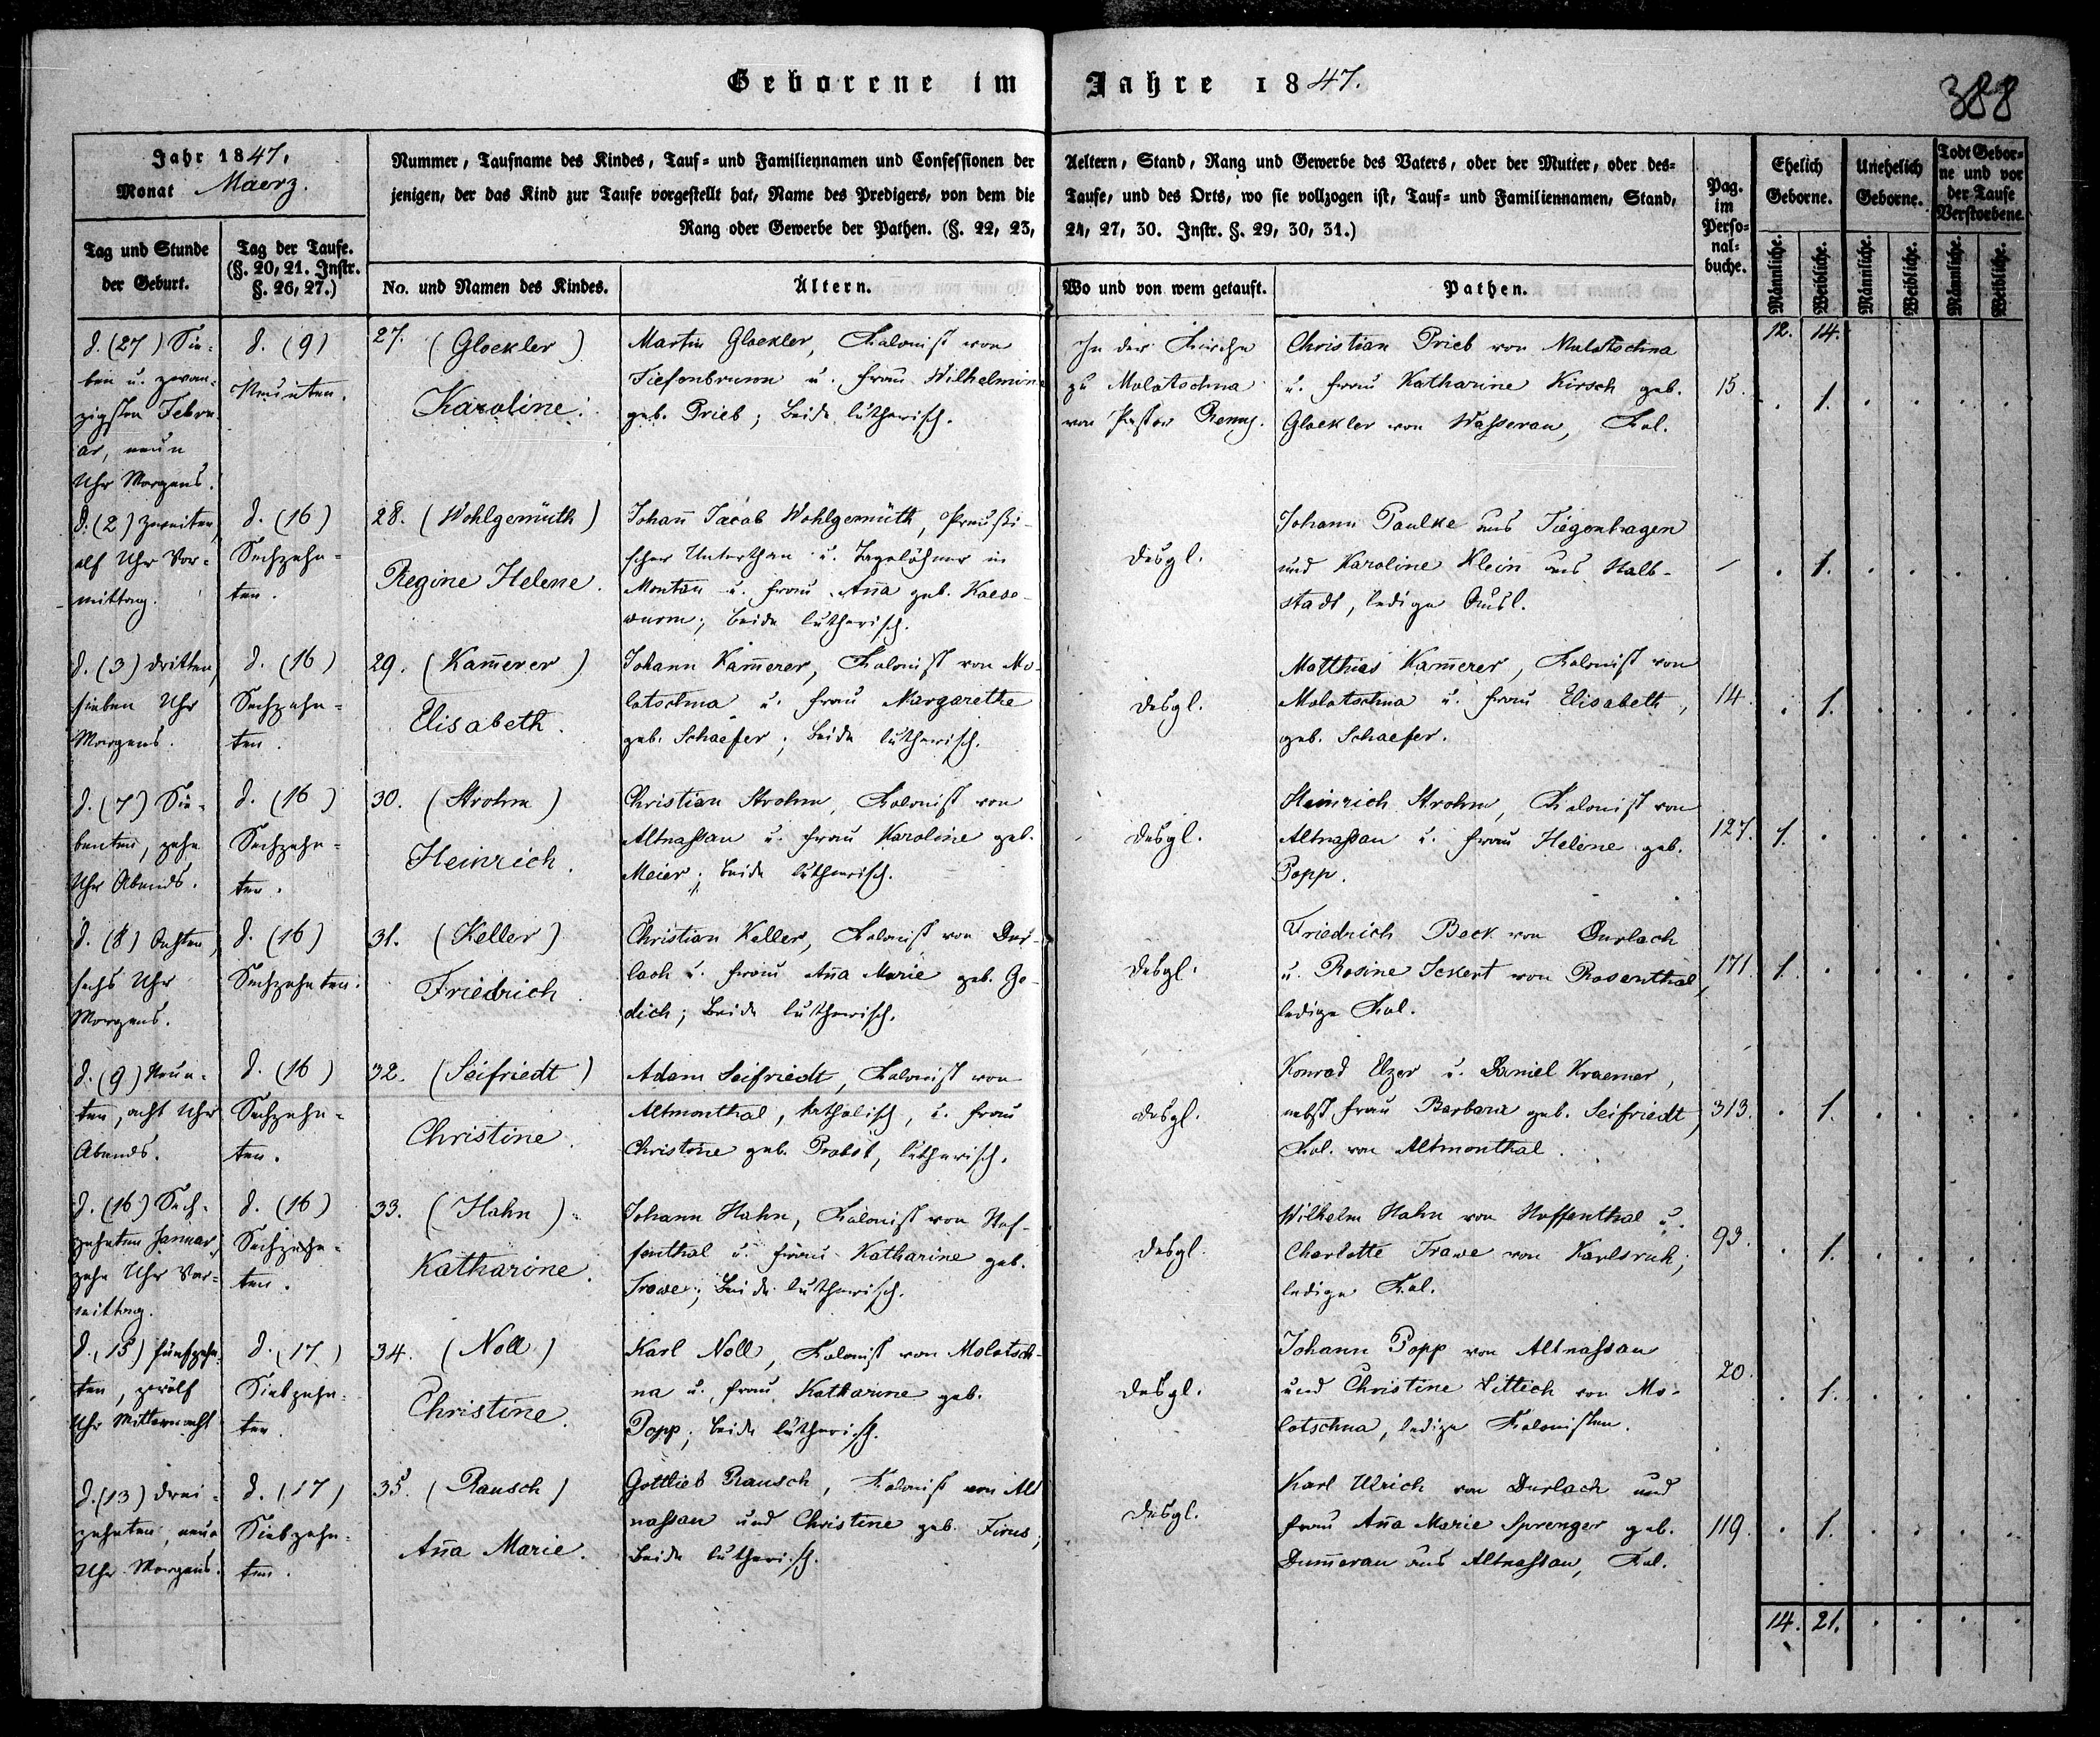 Geborene im Jahre 1847.
388
Jahr 1847.
Monat Maerz.
Nummer, Taufname des Kindes, Tauf- und Familiennamen und Confessionen der Aeltern, Stand, Rang und Gewerbe des Vaters, oder der Mutter, oder des-
jenigen, der das Kind zur Taufe vorgestellt hat, Name des Predigers, von dem die Taufe, und des Orts, wo sie vollzogen ist, Tauf- und Familiennamen, Stand,
Rang oder Gewerbe der Pathen. (§. 22, 23, 24, 27, 30. Instr. §. 29, 30, 31.)
Tag und Stunde
der Geburt.
Tag der Taufe.
(§. 20, 21. Instr.
§. 26, 27.)
No. und Namen des Kindes.
Ältern.
Wo und von wem getauft.
Pathen.
Pag.
im
Perso-
nal-
buche.
Ehelich
Geborne.
Unehelich
Geborne.
Todt Gebor-
ne und vor
der Taufe
Verstorbene.
Männliche.
Weibliche.
Männliche.
Weibliche.
Männliche.
Weibliche.
12. 14.
d. (27) Sie-
ben u. zwan-
zigsten Febru-
ar, neun
Uhr Morgens.
d. (9)
Neunten.
27. (Gloekler)
Karoline.
Martin Gloekler, Kolonist von
Tiefenbrunn u. Frau Wilhelmine
geb. Prieb; beide lutherisch.
In der Kirche
zu Molotschna
von Pastor
Christian Prieb von Molotschna
u. Frau Katharine Kirsch geb.
Gloekler von Wasserau, Kol.
15.
. 1. . . . .
d. (2) Zweiten,
elf Uhr Vor-
mittag.
d. (16)
Sechzehn-
ten.
28. (Wohlgemuth)
Regine Helene.
Johan̄ Jacob Wohlgemuth, Preußi-
scher Unterthan u. Tagelöhner in
Montau u. Frau An̄a geb. Kaese-
wurm; beide lutherisch.
desgl.
Johann Paulke aus Tiegenhagen
und Karoline Klein aus Halb-
stadt, ledige Ausl.
–
. 1. . . . .
d. (3) dritten,
sieben Uhr
Morgens.
d. (16)
Sechzehn-
ten.
29. (Kam̄erer)
Elisabeth.
Johann Kam̄erer, Kolonist von Mo-
lotschna u. Frau Margarethe
geb. Schaefer; beide lutherisch.
desgl.
Matthias Kam̄erer, Kolonist von
Molotschna u. Frau Elisabeth,
geb. Schaefer.
14.
. 1. . . . .
d. (7) Sie-
benten, zehn
Uhr Abends.
d. (16)
Sechzehn-
ten.
30. (Strohm)
Heinrich.
Christian Strohm, Kolonist von
Altnassau u. Frau Karoline geb.
Meier; beide lutherisch.
desgl.
Heinrich Strohm, Kolonist von
Altnassau u. Frau Helene geb.
Popp.
127.
1. . . . . .
d. (8) Achten,
sechs Uhr
Morgens.
d. (16)
Sechzehnten.
31. (Keller)
Friedrich.
Christian Keller, Kolonist von Dur-
lach u. Frau An̄a Marie geb. Ge-
dich; beide lutherisch.
desgl.
Friedrich Beck von Durlach
u. Rosine Ickert von Rosenthal,
ledige Kol.
171.
1. . . . . .
d. (9) Neun-
ten, acht Uhr
Abends.
d. (16)
Sechzehn-
ten.
32. (Seifriedt)
Christine.
Adam Seifriedt, Kolonist von
Altmonthal, katholisch, u. Frau
Christine geb. Probst, lutherisch.
desgl.
Konrad Elzer u. Daniel Kraemer,
nebst Frau Barbara geb. Seifriedt,
Kol. von Altmonthal.
313.
. 1. . . . .
d. (16) Sech-
zehnten Januar,
zehn Uhr Vor-
mittag.
d. (16)
Sechzehn-
ten.
33. (Hahn)
Katharine.
Johann Hahn, Kolonist von Hof-
fenthal u. Frau Katharine geb.
Trawe; beide lutherisch.
desgl.
Wilhelm Hahn von Hoffenthal u.
Charlotte Trawe von Karlsruh;
ledige Kol.
93.
. 1. . . . .
d. (15) fünfzehn-
ten, zwölf
Uhr Mitternacht
d. (17)
Siebzehn-
ten.
34. (Noll)
Christine.
Karl Noll, Kolonist von Molotsch-
na u. Frau Katharine geb.
Popp; beide lutherisch.
desgl.
Johann Popp von Altnassau
und Christine Littich von Mo-
lotschna, ledige Kolonisten.
20.
. 1. . . . .
d. (13) drei-
zehnten, neun
Uhr Morgens.
d. (17)
Siebzehn-
ten.
35. (Rausch)
An̄a Marie.
Gottlieb Rausch, Kolonist von Alt
nassau und Christine geb. Firus;
beide lutherisch.
desgl.
Karl Ulrich von Durlach und
Frau An̄a Marie Sprenger geb.
Dum̄erau aus Altnassau, Kol.
119.
. 1. . . . .
14. 21. . . . .